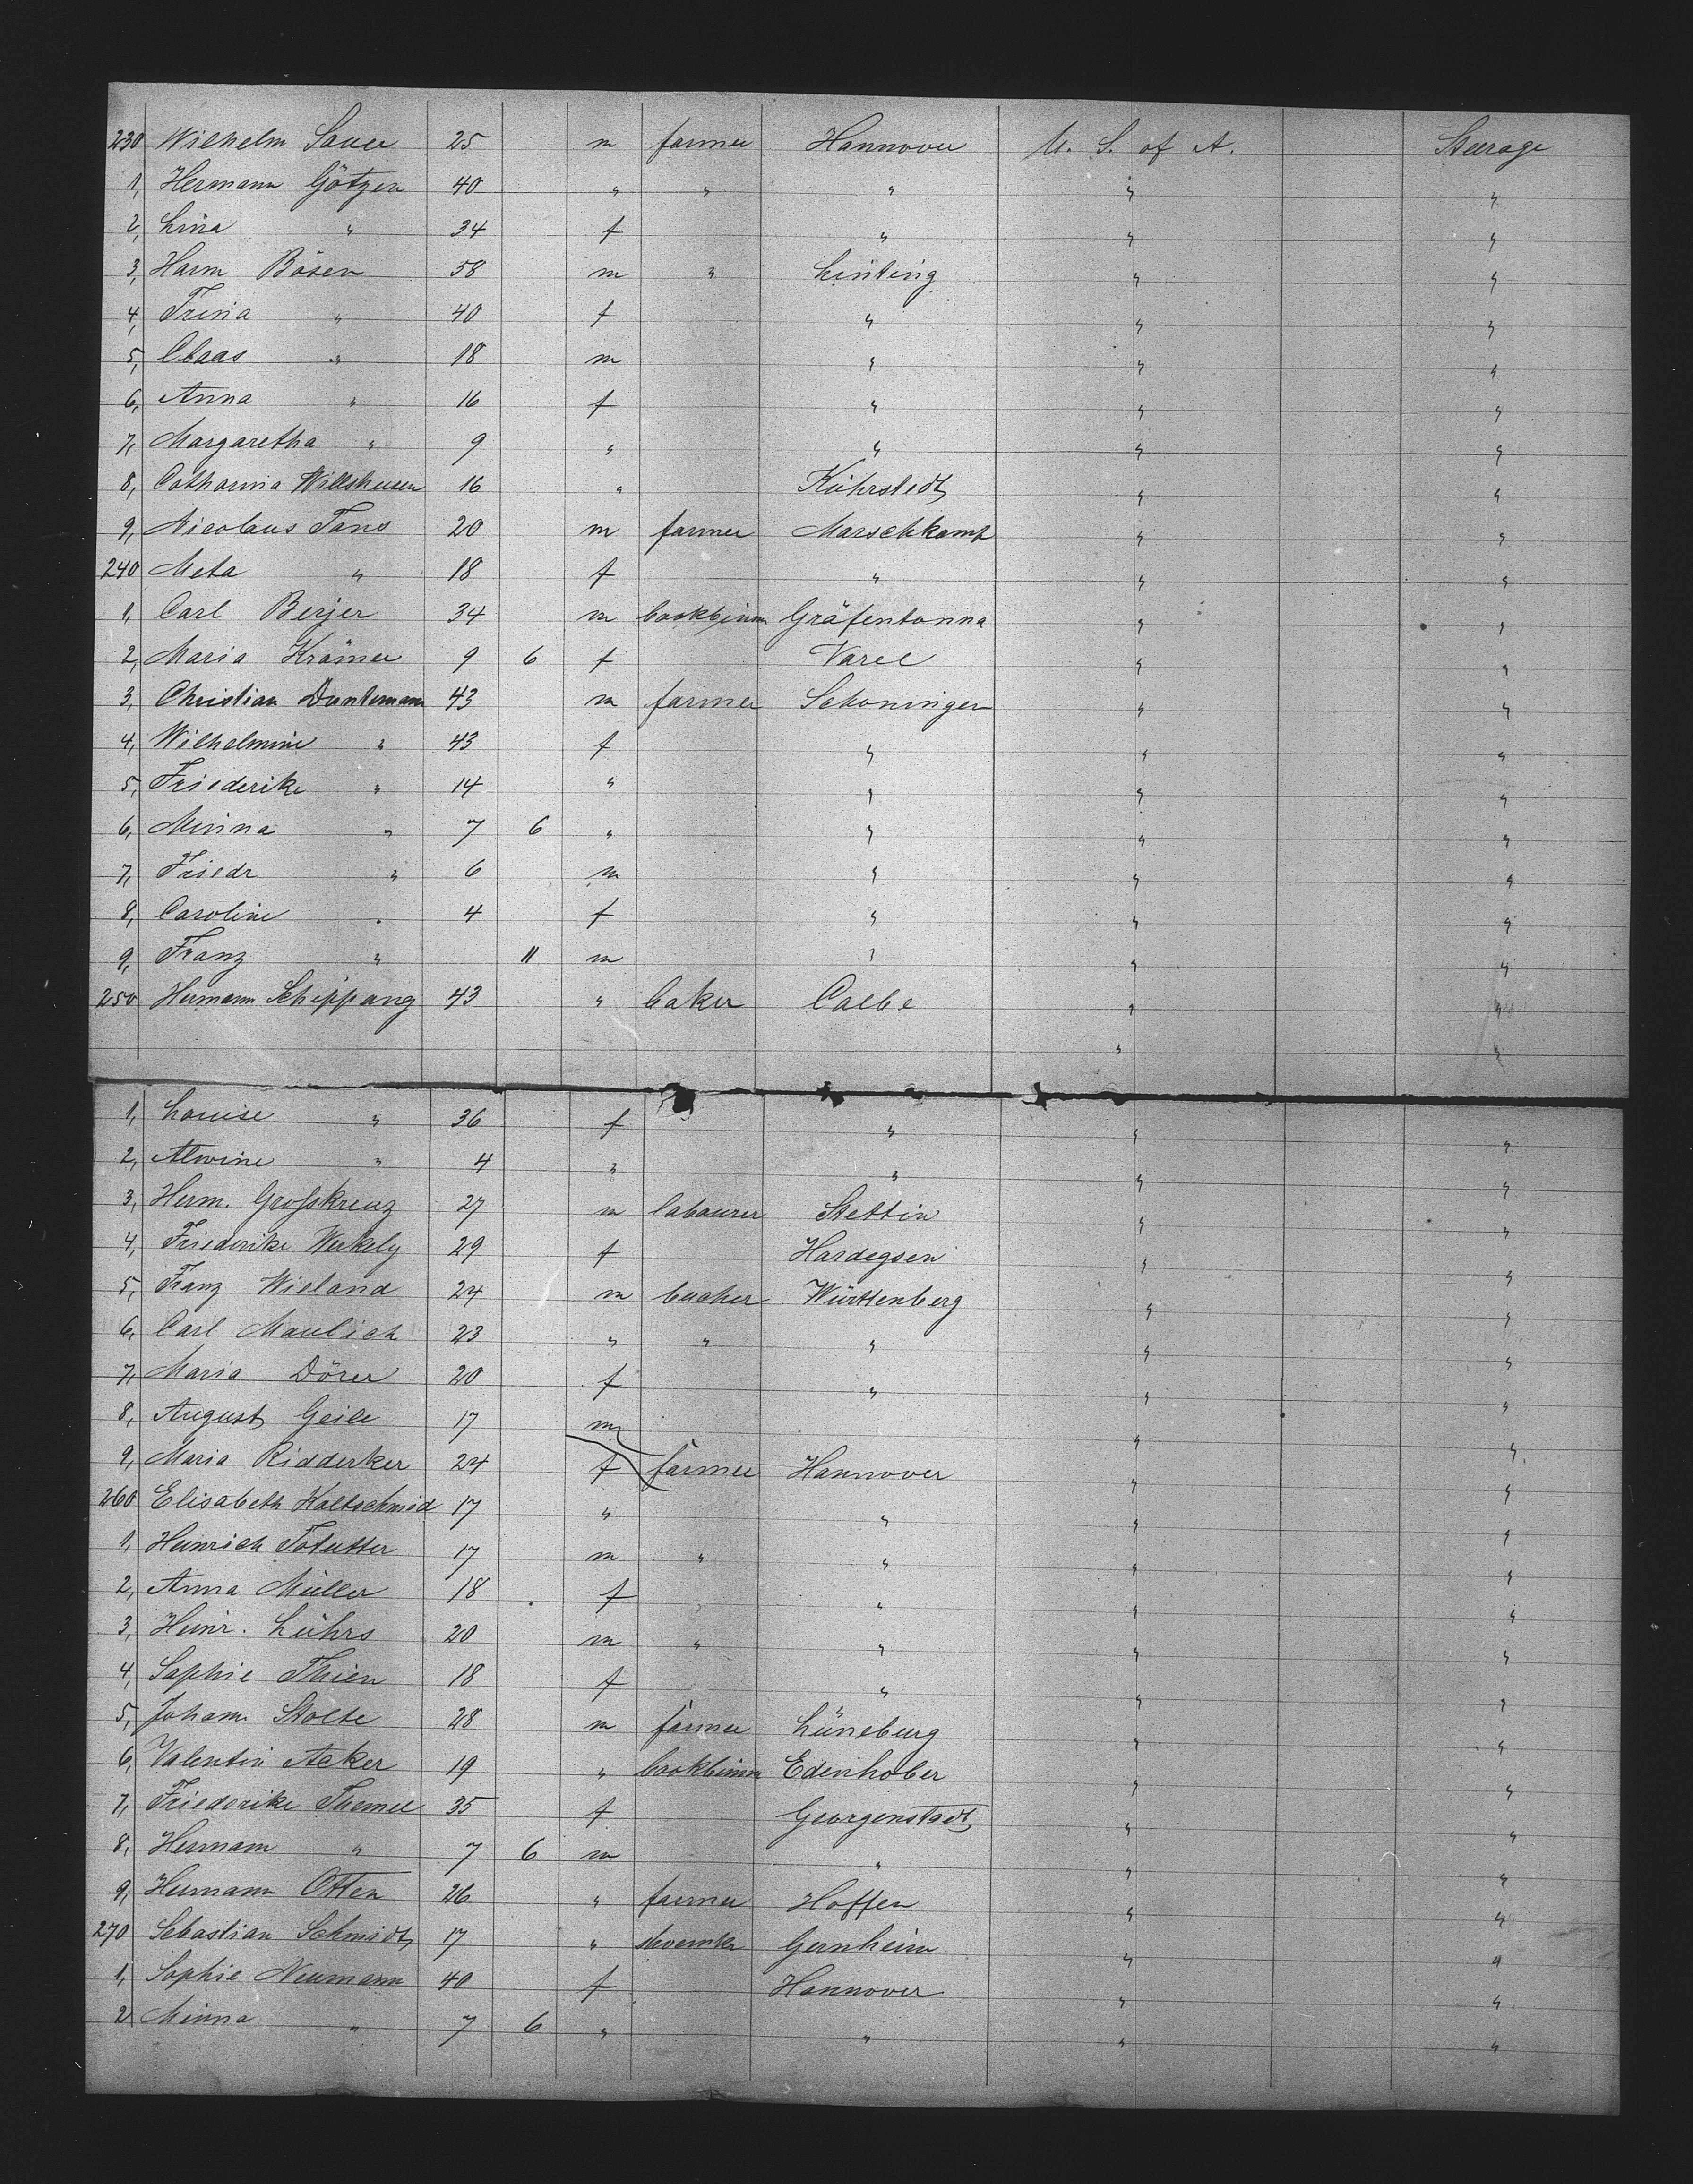 230 Wilhelm Sauer 25 m farmer Hannover U. S. of A. Steerage
1, Hermann Götzen 40 " " " " "
2, Lina " 34 f " " "
3, Harm Bösen 58 m " Linting " "
4, Trina " 40 f " " "
5, Claas " 18 m " " "
6, Anna " 16 f " " "
7, Margaretha " 9 " " " "
8, Catharina Willshusen 16 " Kührstedt " "
9, Nicolaus Tans 20 m farmer Marschkamp " "
240 Meta " 18 f " " "
1, Carl Berjer 34 m bookbinn Gräfentonna " "
2, Maria Krämer 9 6 f Varel " "
3, Christian Duntemann 43 m farmer Schoningen " "
4, Wilhelmine " 43 f " " "
5, Friederike " 14 " " " "
6, Minna " 7 6 " " " "
7, Friedr " 6 m " " "
8, Caroline " 4 f " " "
9, Franz " 11 m " " "
250 Hermann Schippang 43 " baker Calbe " "
" "
1, Louise " 36 f " " "
2, Alwine " 4 " " " "
3, Herm. Grosskreuz 27 m labourer Stettin " "
4, Friederike Werkely 29 f Hardegsen " "
5, Franz Wieland 24 m bucher Württenberg " "
6, Carl Maulich 23 " " " " "
7, Maria Dörer 20 f " " "
8, August Geile 17 m " "
9, Maria Ridderker 24 f farmer Hannover " "
260 Elisabeth Kaltschmid 17 " " " "
1, Heinrich Totutter 17 m " " " "
2, Anna Müller 18 f " " " "
3, Heinr. Lührs 20 m " " " "
4, Sophie Thien 18 f " " "
5, Johann Stolte 28 m farmer Lüneburg " "
6, Valentin Acker 19 " bookbinn Edenhober " "
7, Friederike Themel 35 f Georgenstadt " "
8, Hermann " 7 6 m " " "
9, Hermann Otten 26 " farmer Hoffen " "
270 Sebastian Schmidt 17 " Gernheim " "
1, Sophie Neumann 40 f Hannover " "
2 Minna " 7 6 " " " "